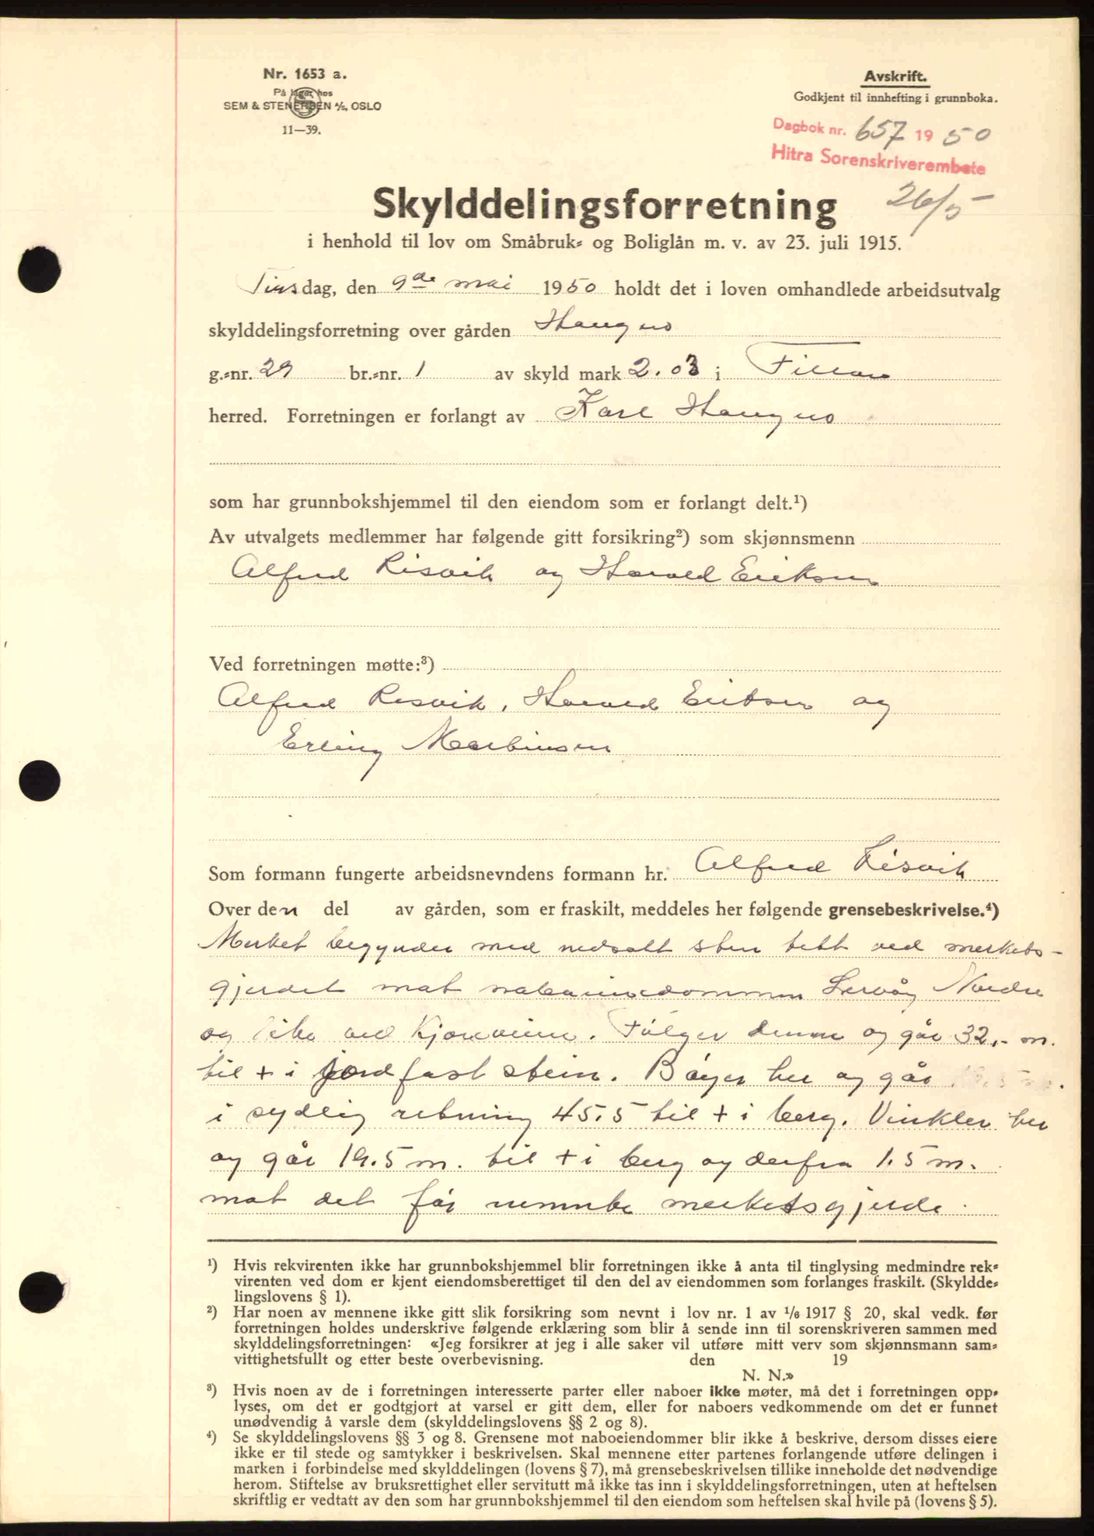 Nr. 1653 a.
På lager hos
SEM & STENERSEN A/S, OSLO
11—39.
Avskrift.
Godkjent til innhefting i grunnboka.
Dagbok nr. 657 1950
Hitra Sorenskriverembete
26/5
Skylddelingsforretning
i henhold til lov om Småbruk- og Boliglån m. v. av 23. juli 1915.
Tirsdag, den 9de mai 1950 holdt det i loven omhandlede arbeidsutvalg
skylddelingsforretning over gården Haugnes
g.-nr. 29 br.-nr. 1 av skyld mark 2.03 i Fillan
herred. Forretningen er forlangt av Karl Haugnes
som har grunnbokshjemmel til den eiendom som er forlangt delt.¹)
Av utvalgets medlemmer har følgende gitt forsikring²) som skjønnsmenn
Alfred Risvik og Harald Eriksen
Ved forretningen møtte:³)
Alfred Risvik, Harald Eriksen og
Erling Martinsen
Som formann fungerte arbeidsnevndens formann hr. Alfred Risvik
Over den del av gården, som er fraskilt, meddeles her følgende grensebeskrivelse.⁴)
Merket begynder med nedsatt sten tett ved merkets-
gjerdet mot naboeiendommen Lervåg Nordre
og like ved Kjøreveien. Følger denne og går 32,- m.
til + i jordfast stein. Bøyer her og går
i sydlig retning 45.5 til + i berg. Vinkler her
og går 19.5 m. til + i berg og derfra 1.5 m.
mot det før nevnte merketsgjerde.
¹) Hvis rekvirenten ikke har grunnbokshjemmel blir forretningen ikke å anta til tinglysing medmindre rek-
virenten ved dom er kjent eiendomsberettiget til den del av eiendommen som forlanges fraskilt. (Skyldde-
lingslovens § 1).
²) Har noen av mennene ikke gitt slik forsikring som nevnt i lov nr. 1 av ¹/₆ 1917 § 20, skal vedk. før
forretningen holdes underskrive følgende erklæring som blir å sende inn til sorenskriveren sammen med
skylddelingsforretningen: «Jeg forsikrer at jeg i alle saker vil utføre mitt verv som skjønnsmann sam-
vittighetsfullt og etter beste overbevisning. den 19
N. N.»
³) Hvis noen av de i forretningen interesserte parter eller naboer ikke møter, må det i forretningen opp-
lyses, om det er godtgjort at varsel er gitt dem, eller for naboers vedkommende om det er funnet
unødvendig å varsle dem (skylddelingslovens §§ 2 og 8).
⁴) Se skylddelingslovens §§ 3 og 8. Grensene mot naboeiendommer blir ikke å beskrive, dersom disses eiere
ikke er til stede og samtykker i beskrivelsen. Skal mennene etter partenes forlangende utføre delingen i
marken i forbindelse med skylddelingen (lovens § 7), må grensebeskrivelsen tillike inneholde det nødvendige
herom. Stiftelse av bruksrettighet eller servitutt må ikke tas inn i skylddelingsforretningen, uten at heftelsen
skriftlig er vedtatt av den som har grunnbokshjemmel til den eiendom som heftelsen skal hvile på (lovens § 5).